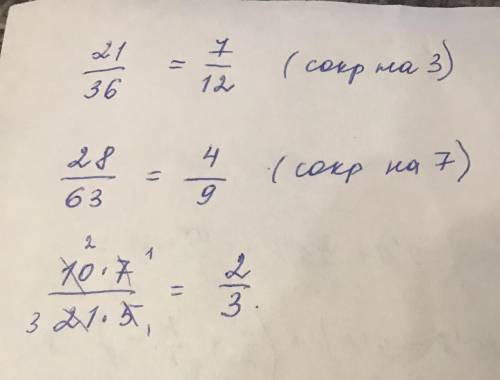 21/36 = 7/12 (сокр на 3)
28/63 = 4/9 (сокр на 7)
2 1
10·7/21·5 = 2/3.
3 1